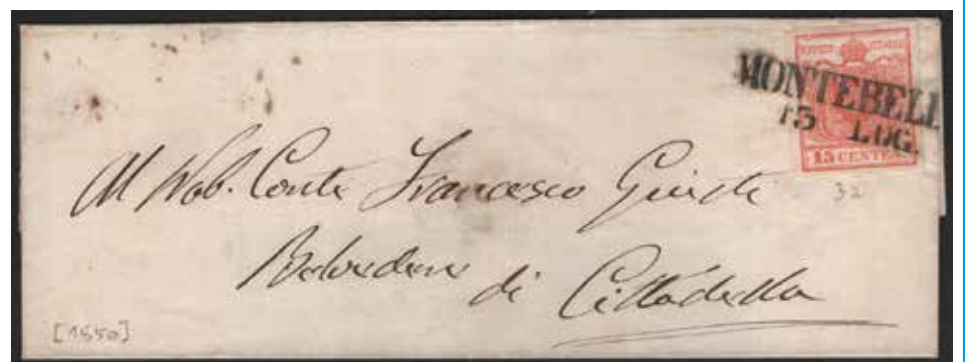 MONTEBELL
15 LUG.
15 CENTES.
32
Al Nob. Conte Francesco Giusti
Belvedere
di Cittadella
[1850]